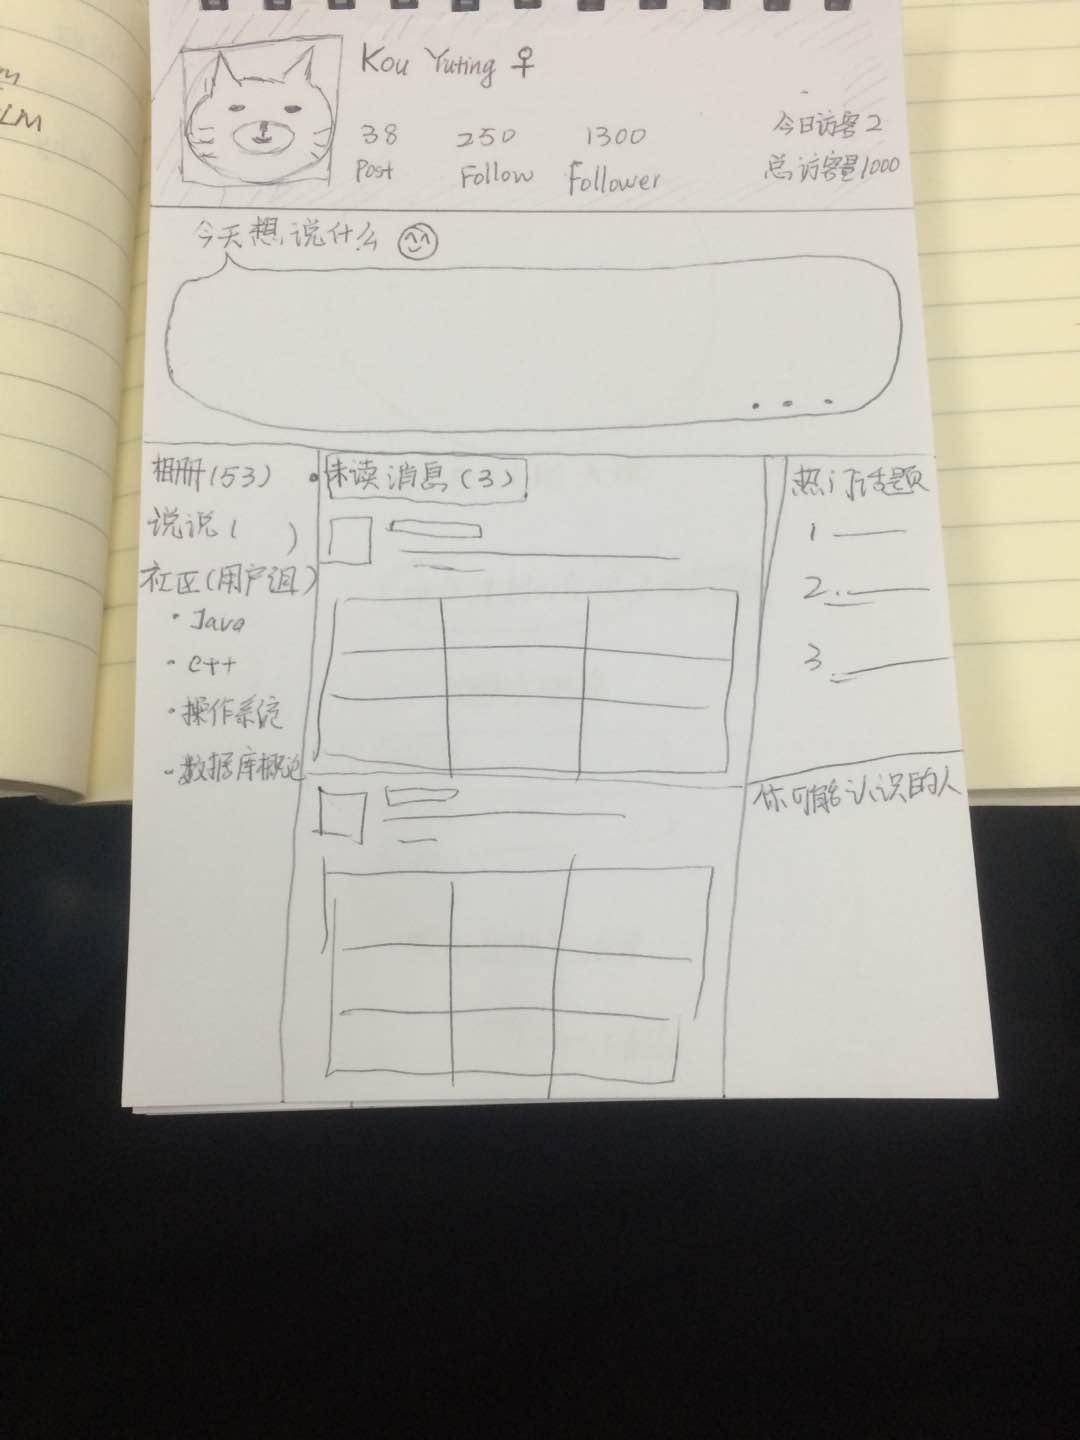 LM
Kou Yuting ♀
38 250 1300
Post Follow Follower
今日访客 2
总访客量1000
今天想说什么
...
相册(53)
说说( )
社区(用户组)
· Java
· C++
· 操作系统
· 数据库概论
· 未读消息(3)
热门话题
1
2
3
你可能认识的人